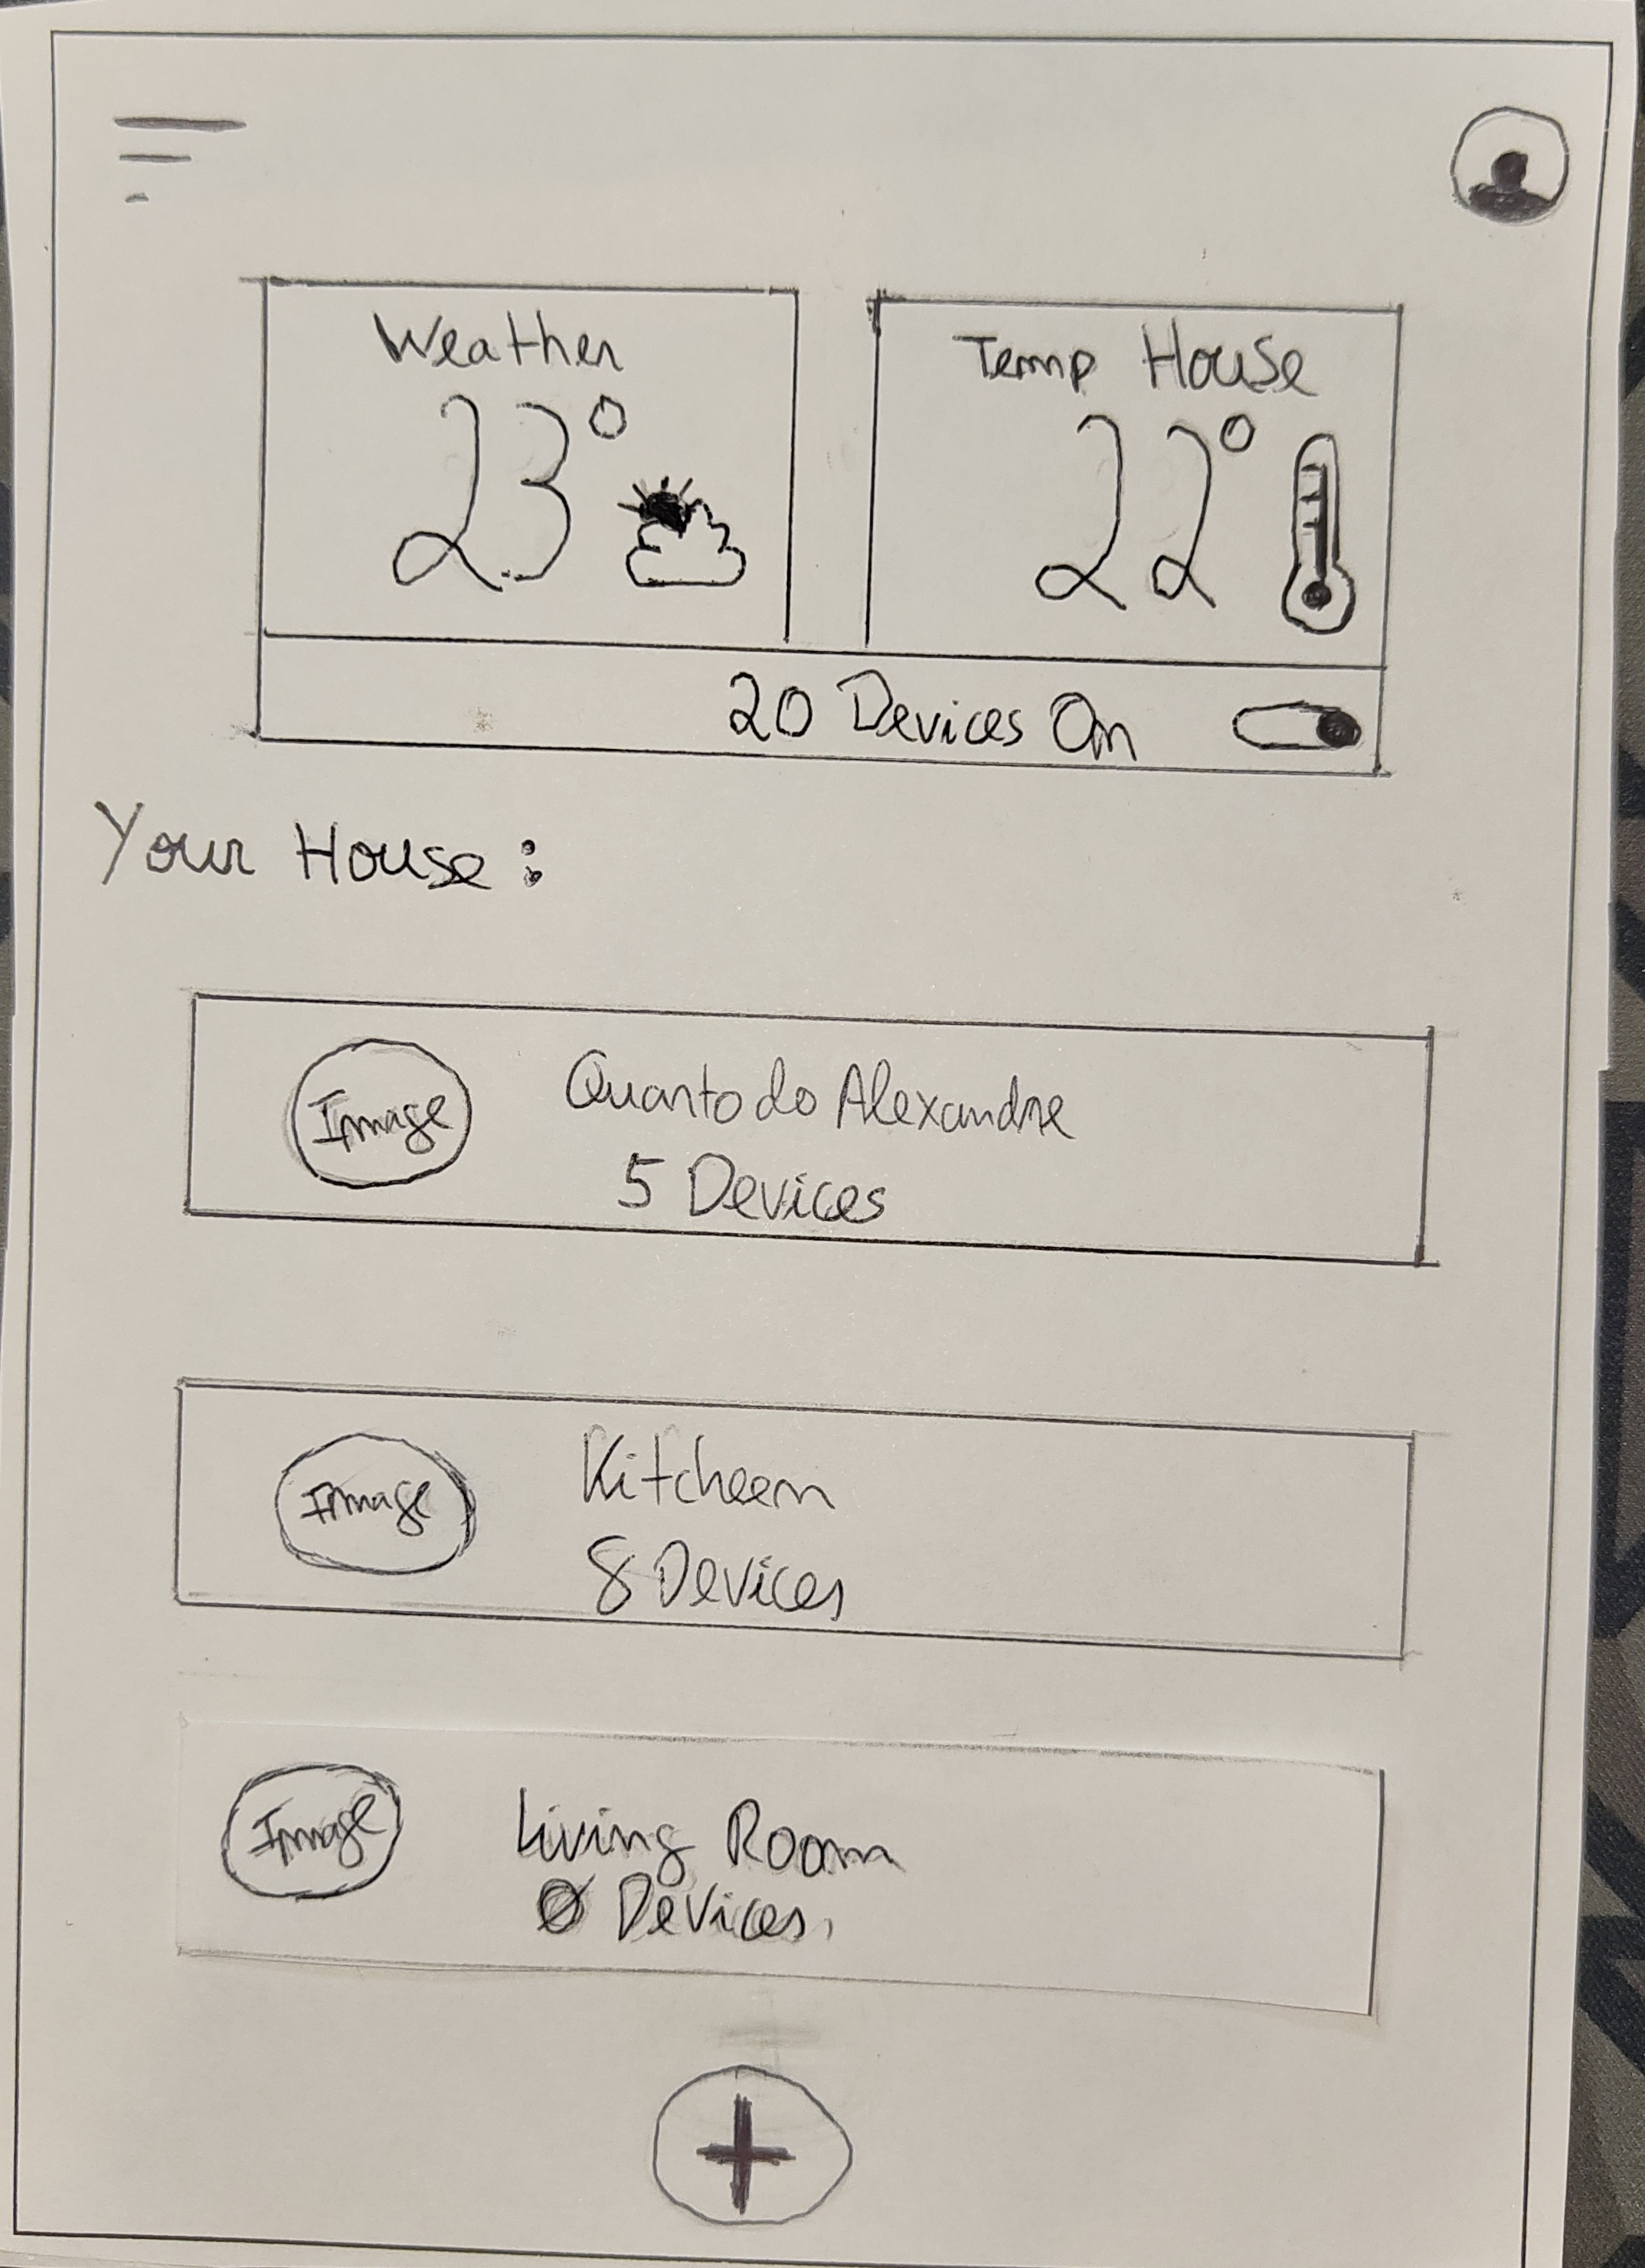 Weather
23°
Temp House
22°
20 Devices On
Your House:
Image
Quarto do Alexandre
5 Devices
Image
Kitcheen
8 Devices
Image
Living Room
0 Devices
+